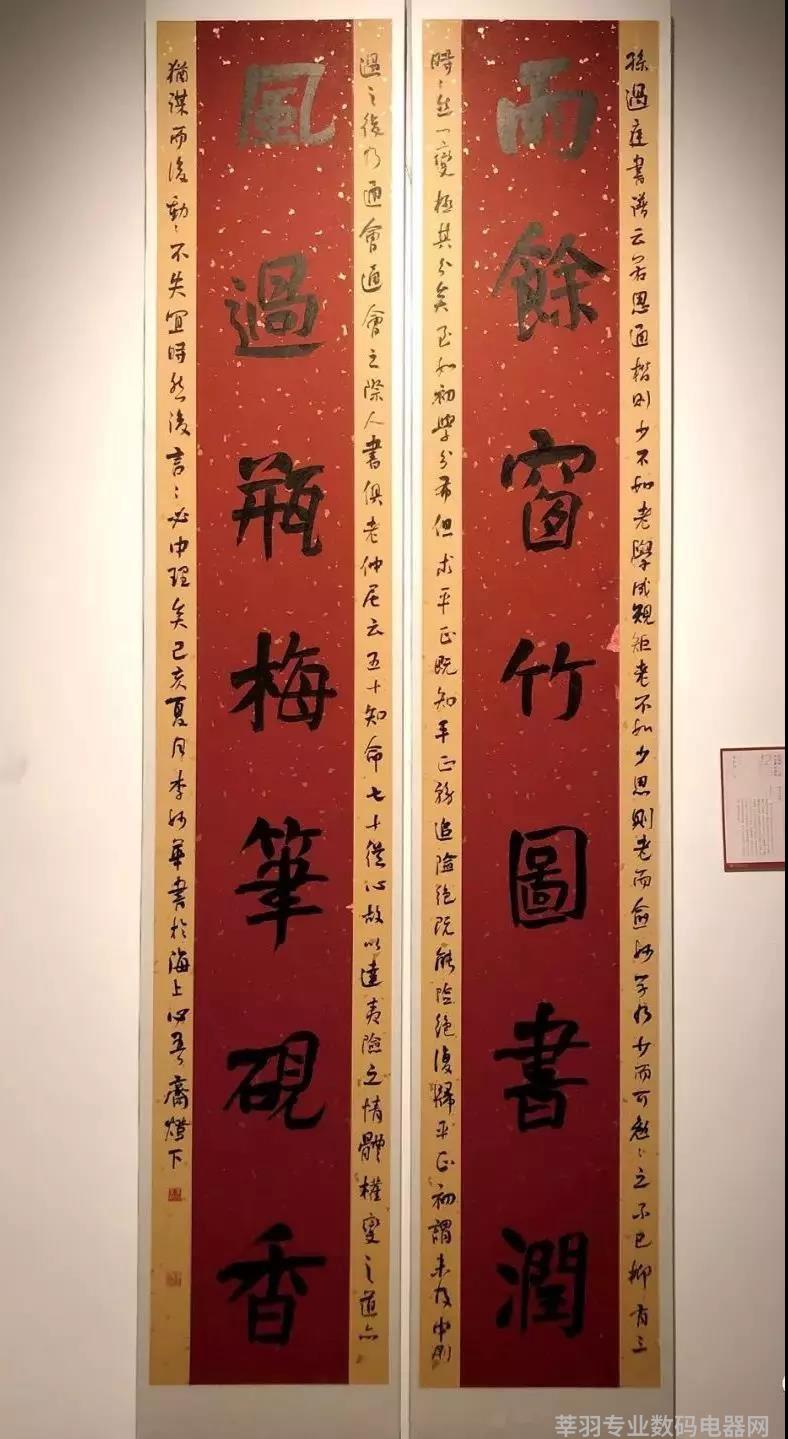 孫過庭書譜云若思通楷則少不如老學成規矩老不如少思則老而愈妙學乃少而可勉〻之不已抑有三
雨餘窗竹圖書潤
時〻然一變極其分矣至如初學分布但求平正既知平正務追險絕既能險絕復歸平正初謂未及中則
過之後乃通會通會之際人書俱老仲尼云五十知命七十從心故以達夷險之情體權變之道亦
風過瓶梅筆硯香
猶謀而後動〻不失宜時然後言〻必中理矣己亥夏月李妙華書於海上心吾齋燈下
莘羽专业数码电器网